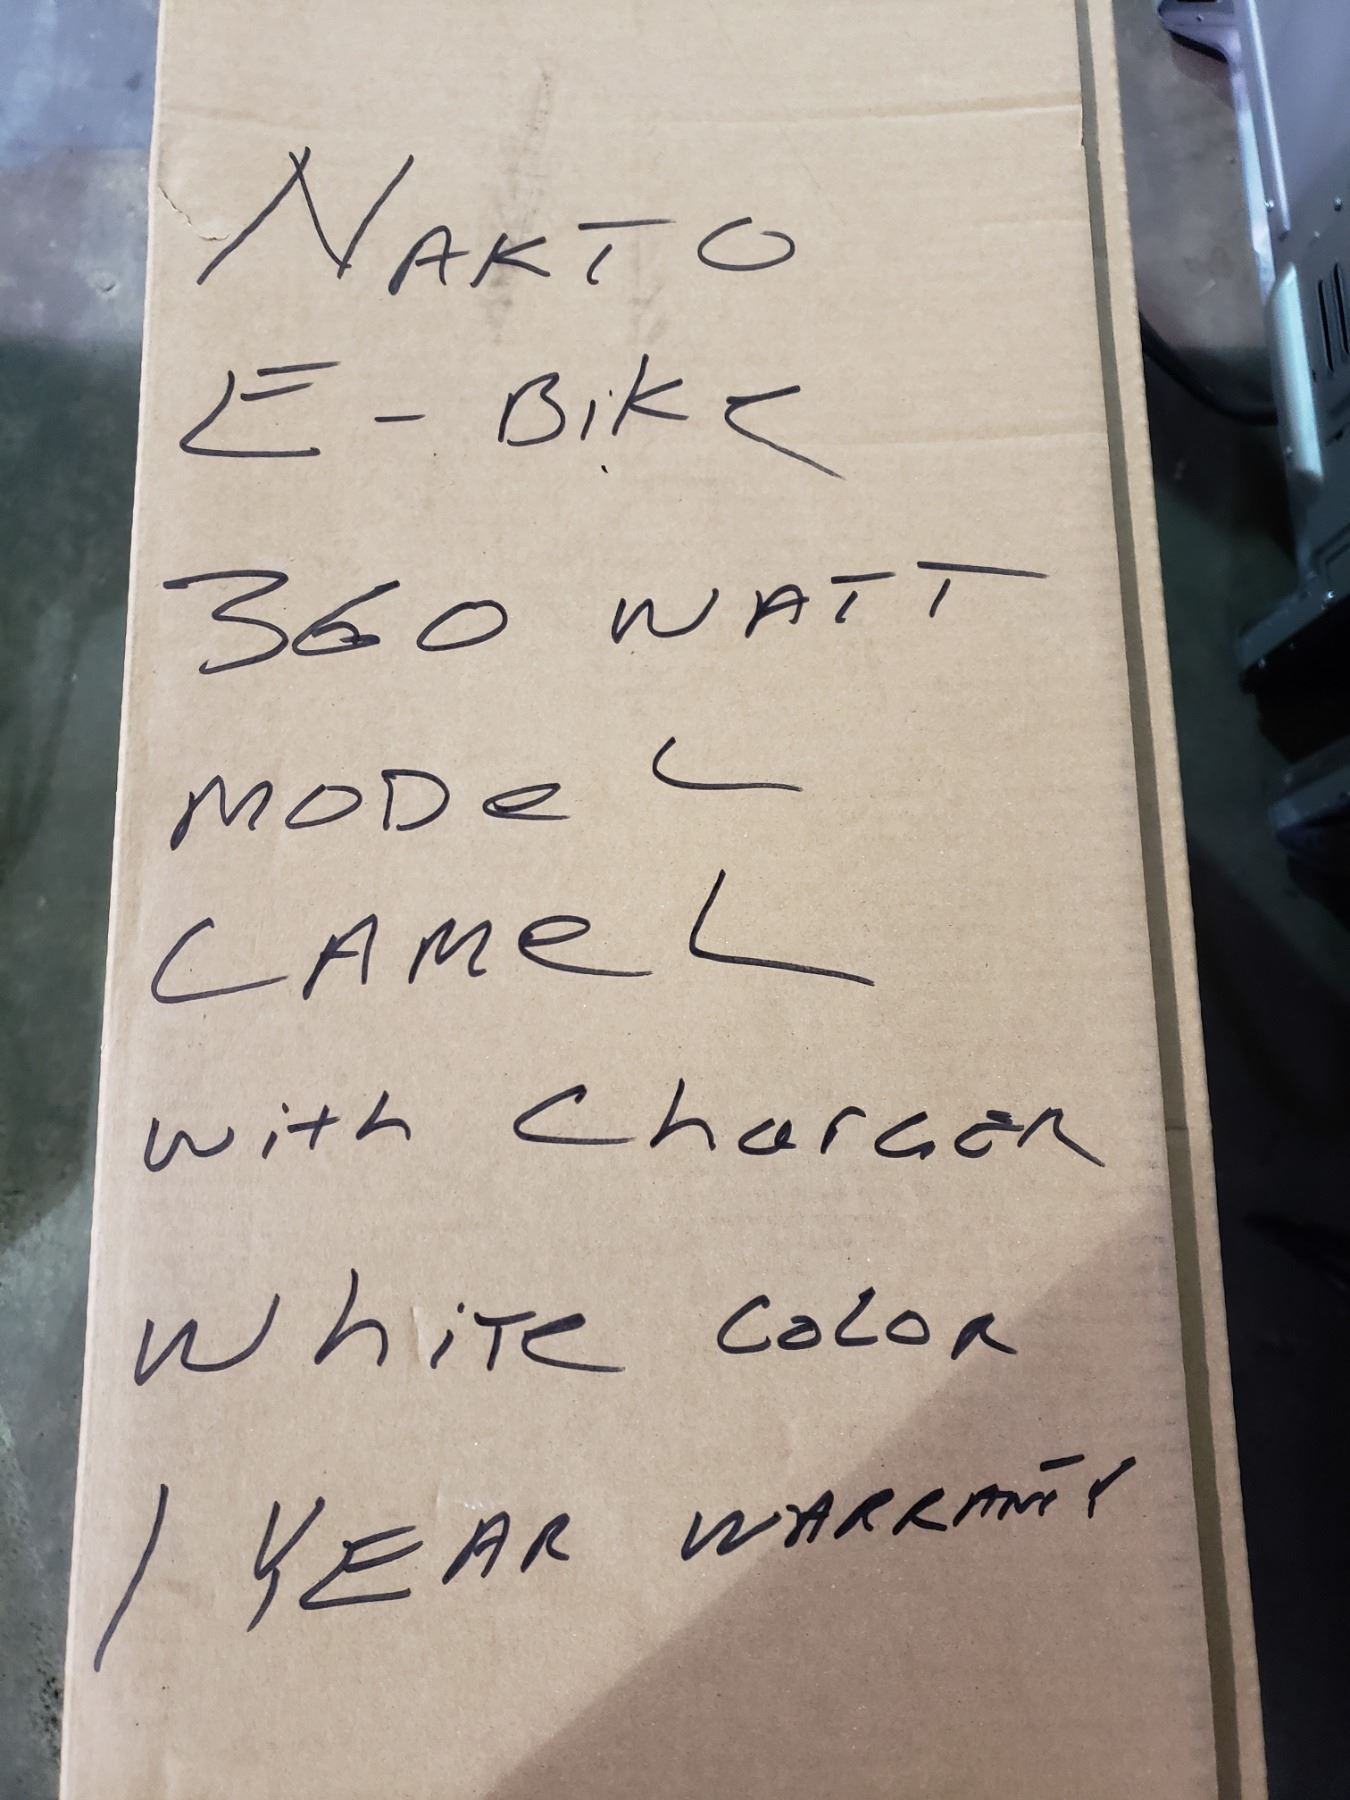 NAKTO
E-BiKe
360 WATT
MODeL
CAMeL
with ChargER
WhiTe COLOR
1 YEAR WARRANTY